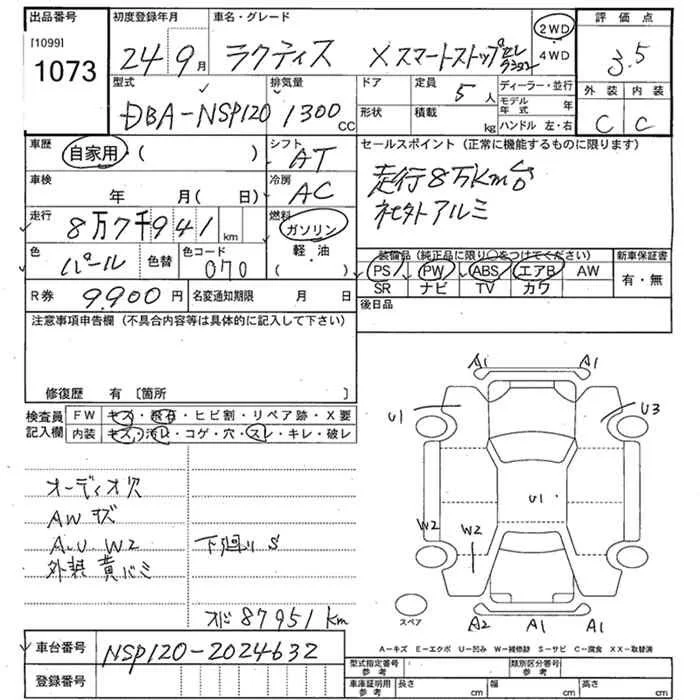 出品番号 初度登録年月 車名・グレード 評価点
[1099]
1073
24年9月 ラクティス Xスマートストップセレクション 2WD 4WD 3.5
型式 排気量 ドア 定員 ディーラー・並行 外装 内装
DBA-NSP120 1300cc 5人 モデル年式 年 C C
形状 積載 kg ハンドル 左・右
車歴 自家用・( ) シフト AT セールスポイント(正常に機能するものに限ります)
車検 年 月( 日) 冷房 AC 走行8万Km台
社外アルミ
走行 8万7千941km 燃料 ガソリン 軽・油
色 パール 色替 色コード 070 装備品(純正品に限り○をつけてください) 新車保証書
PS PW ABS エアB AW 有・無
SR ナビ TV カワ
R券 9900円 名変通知期限 月 日 後日品
注意事項申告欄(不具合内容等は具体的に記入して下さい)
修復歴 有〔箇所 〕
検査員記入欄 FW キズ・飛石・ヒビ割・リペア跡・X要
内装 キズ・汚レ・コゲ・穴・スレ・キレ・破レ
オーディオ穴
AWキズ
A.U.W2 下廻りS
外装黄バミ
メーター 87951km
A1 A1
U1 U3
U1
W2 W2
スペア A2 A1 A1
A-キズ E-エクボ U-凹み W-補修跡 S-サビ C-腐食 XX-取替済
車台番号 NSP120-2024632
登録番号
型式指定番号 参考 類別区分番号 参考
車庫証明用 参考 長さ cm 幅 cm 高さ cm